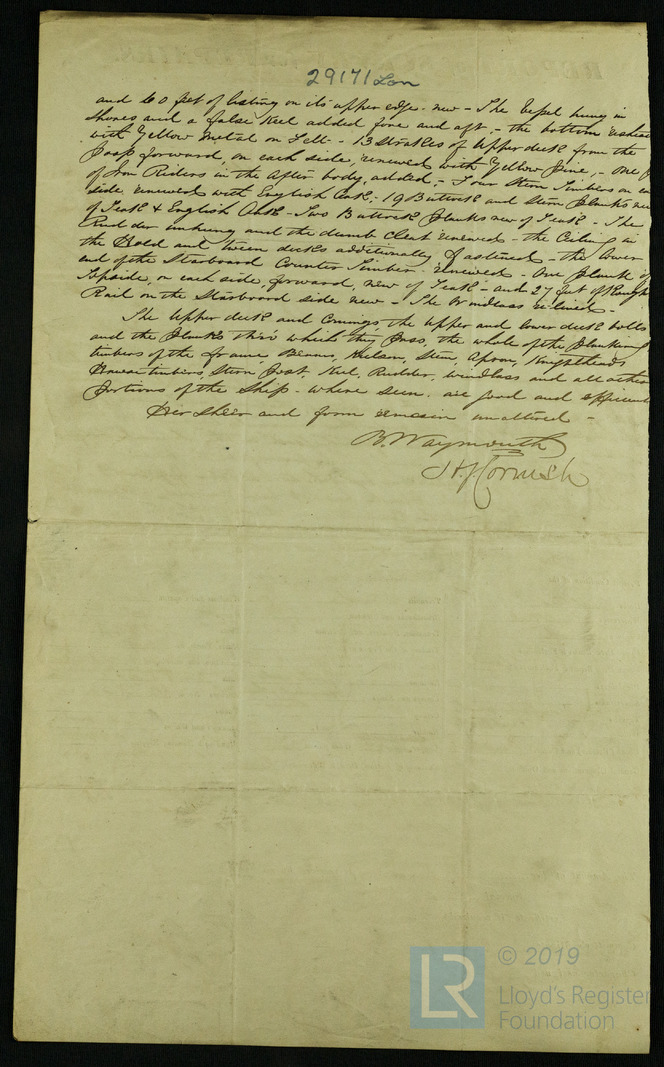 29171 Lon
and 60 feet of listing on its upper edge. new - The Vessel hung in
Shores and a false Keel added fore and aft, - the bottom
with Yellow Metal on Felt - 13 Strakes of Upper deck from the
Poop forward, on each side, renewed with Yellow Pine, - One
of Iron Riders in the After body, added, - Four Stern Timbers on
side renewed with English Oak; 19 Buttock and Stern planks
of Teak & English Oak - Two Buttock planks new of Teak - The
Rudder unhung and the dumb cleat renewed - the Ceiling in
the Hold and tween decks additionally fastened - the lower
end of the Starboard Counter Timber renewed - One plank of
Topside, on each side, forward, new of Teak - and 27 feet of
Rail on the Starboard side new - The Windlass re-lined -
The Upper deck and Comings the Upper and lower deck bolts
and the planks thro' which they pass, the whole of the planking
timbers of the frame, Beams, Keelson, Stem, Apron, Knightheads
Hawse timbers, Stern Post, Keel, Rudder, windlass and all other
portions of the Ship - where seen - are good and efficient
Her sheer and form remain unaltered -
B. Waymouth
J H Cornish
LR
© 2019
Lloyd's Register
Foundation